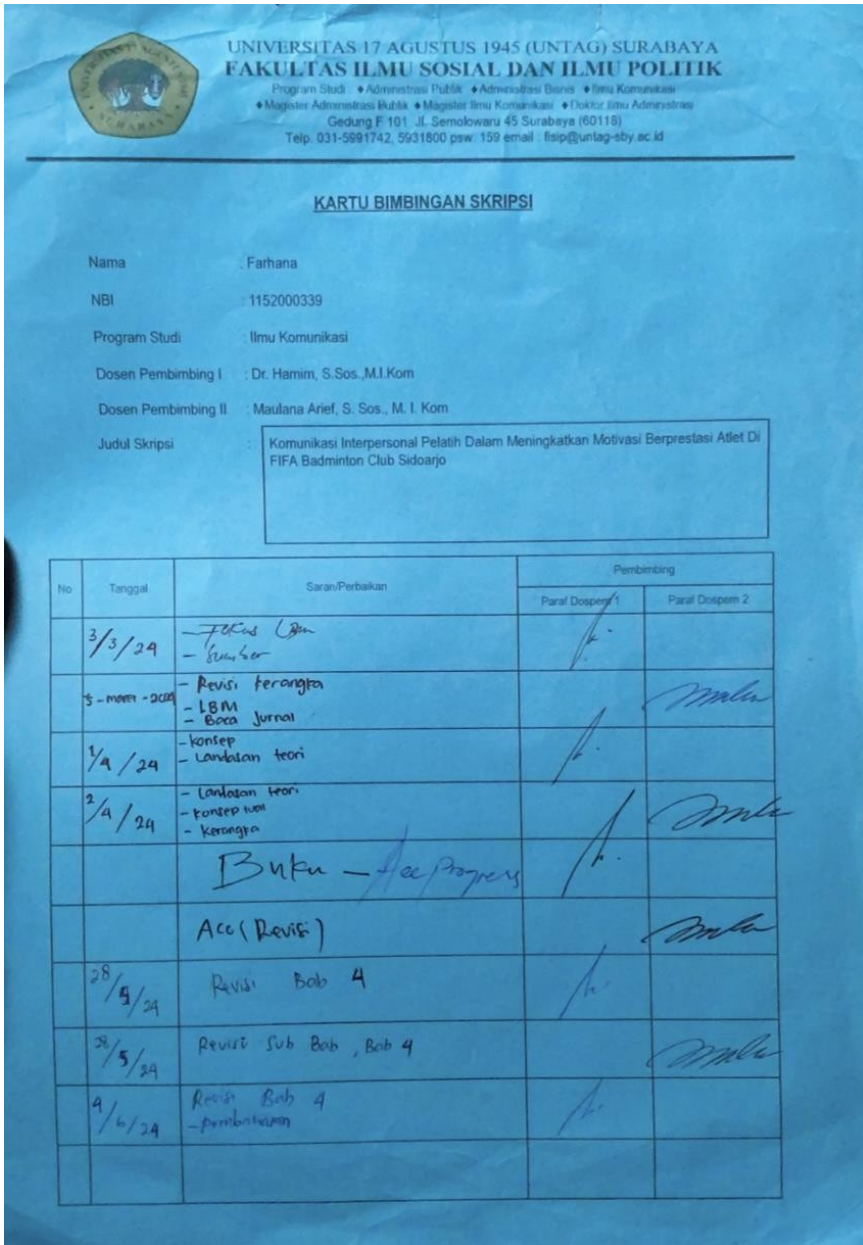 UNIVERSITAS 17 AGUSTUS 1945 (UNTAG) SURABAYA
FAKULTAS ILMU SOSIAL DAN ILMU POLITIK
Program Studi : ◆Administrasi Publik ◆Administrasi Bisnis ◆Ilmu Komunikasi
◆Magister Administrasi Publik ◆Magister Ilmu Komunikasi ◆Doktor Ilmu Administrasi
Gedung F 101 Jl. Semolowaru 45 Surabaya (60118)
Telp. 031-5991742, 5931800 psw. 159 email : fisip@untag-sby.ac.id
KARTU BIMBINGAN SKRIPSI
Nama : Farhana
NBI : 1152000339
Program Studi : Ilmu Komunikasi
Dosen Pembimbing I : Dr. Hamim, S.Sos.,M.I.Kom
Dosen Pembimbing II : Maulana Arief, S. Sos., M. I. Kom
Judul Skripsi : Komunikasi Interpersonal Pelatih Dalam Meningkatkan Motivasi Berprestasi Atlet Di
FIFA Badminton Club Sidoarjo
No Tanggal Saran/Perbaikan Pembimbing
Paraf Dospem 1 Paraf Dospem 2
3/3/24 - Fokus
- Sumber
- Revisi kerangka
- LBM
- Baca Jurnal
1/4/24 - konsep
- Landasan teori
2/4/24 - Landasan teori
- konseptual
- kerangka
Buku - Acc Progress
Acc (Revisi)
28/5/24 Revisi Bab 4
28/5/24 Revisi Sub Bab, Bab 4
4/6/24 Revisi Bab 4
- pembahasan